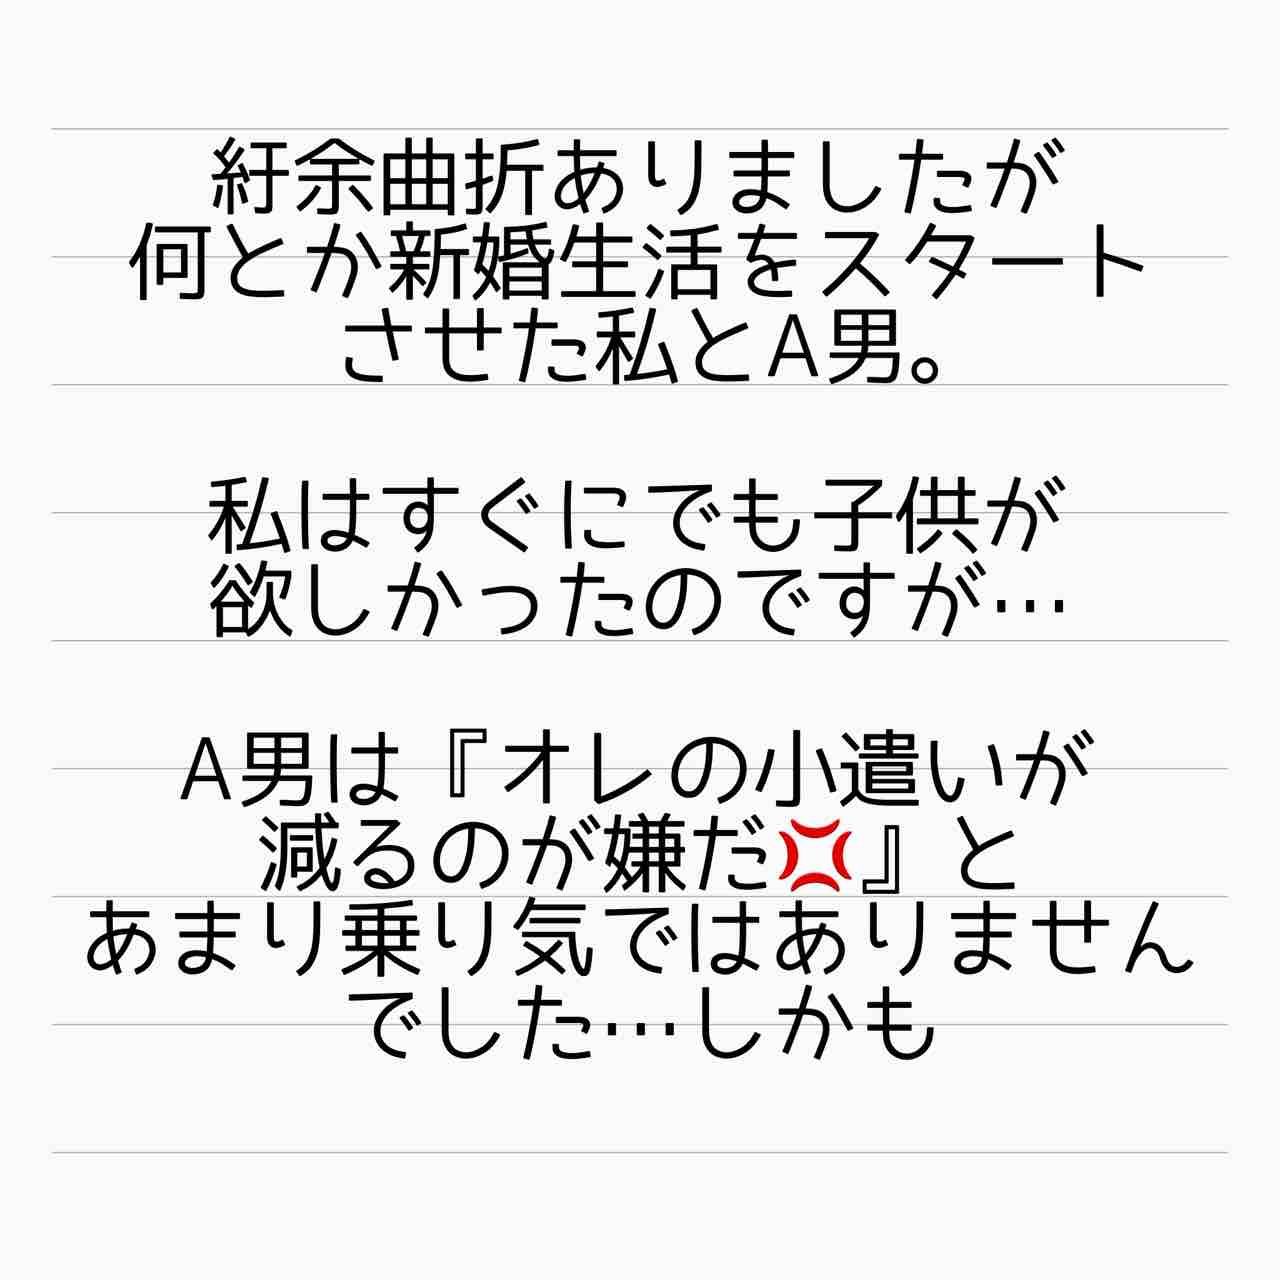 紆余曲折ありましたが
何とか新婚生活をスタート
させた私とA男。
私はすぐにでも子供が
欲しかったのですが…
A男は『オレの小遣いが
減るのが嫌だ💢』と
あまり乗り気ではありません
でした…しかも